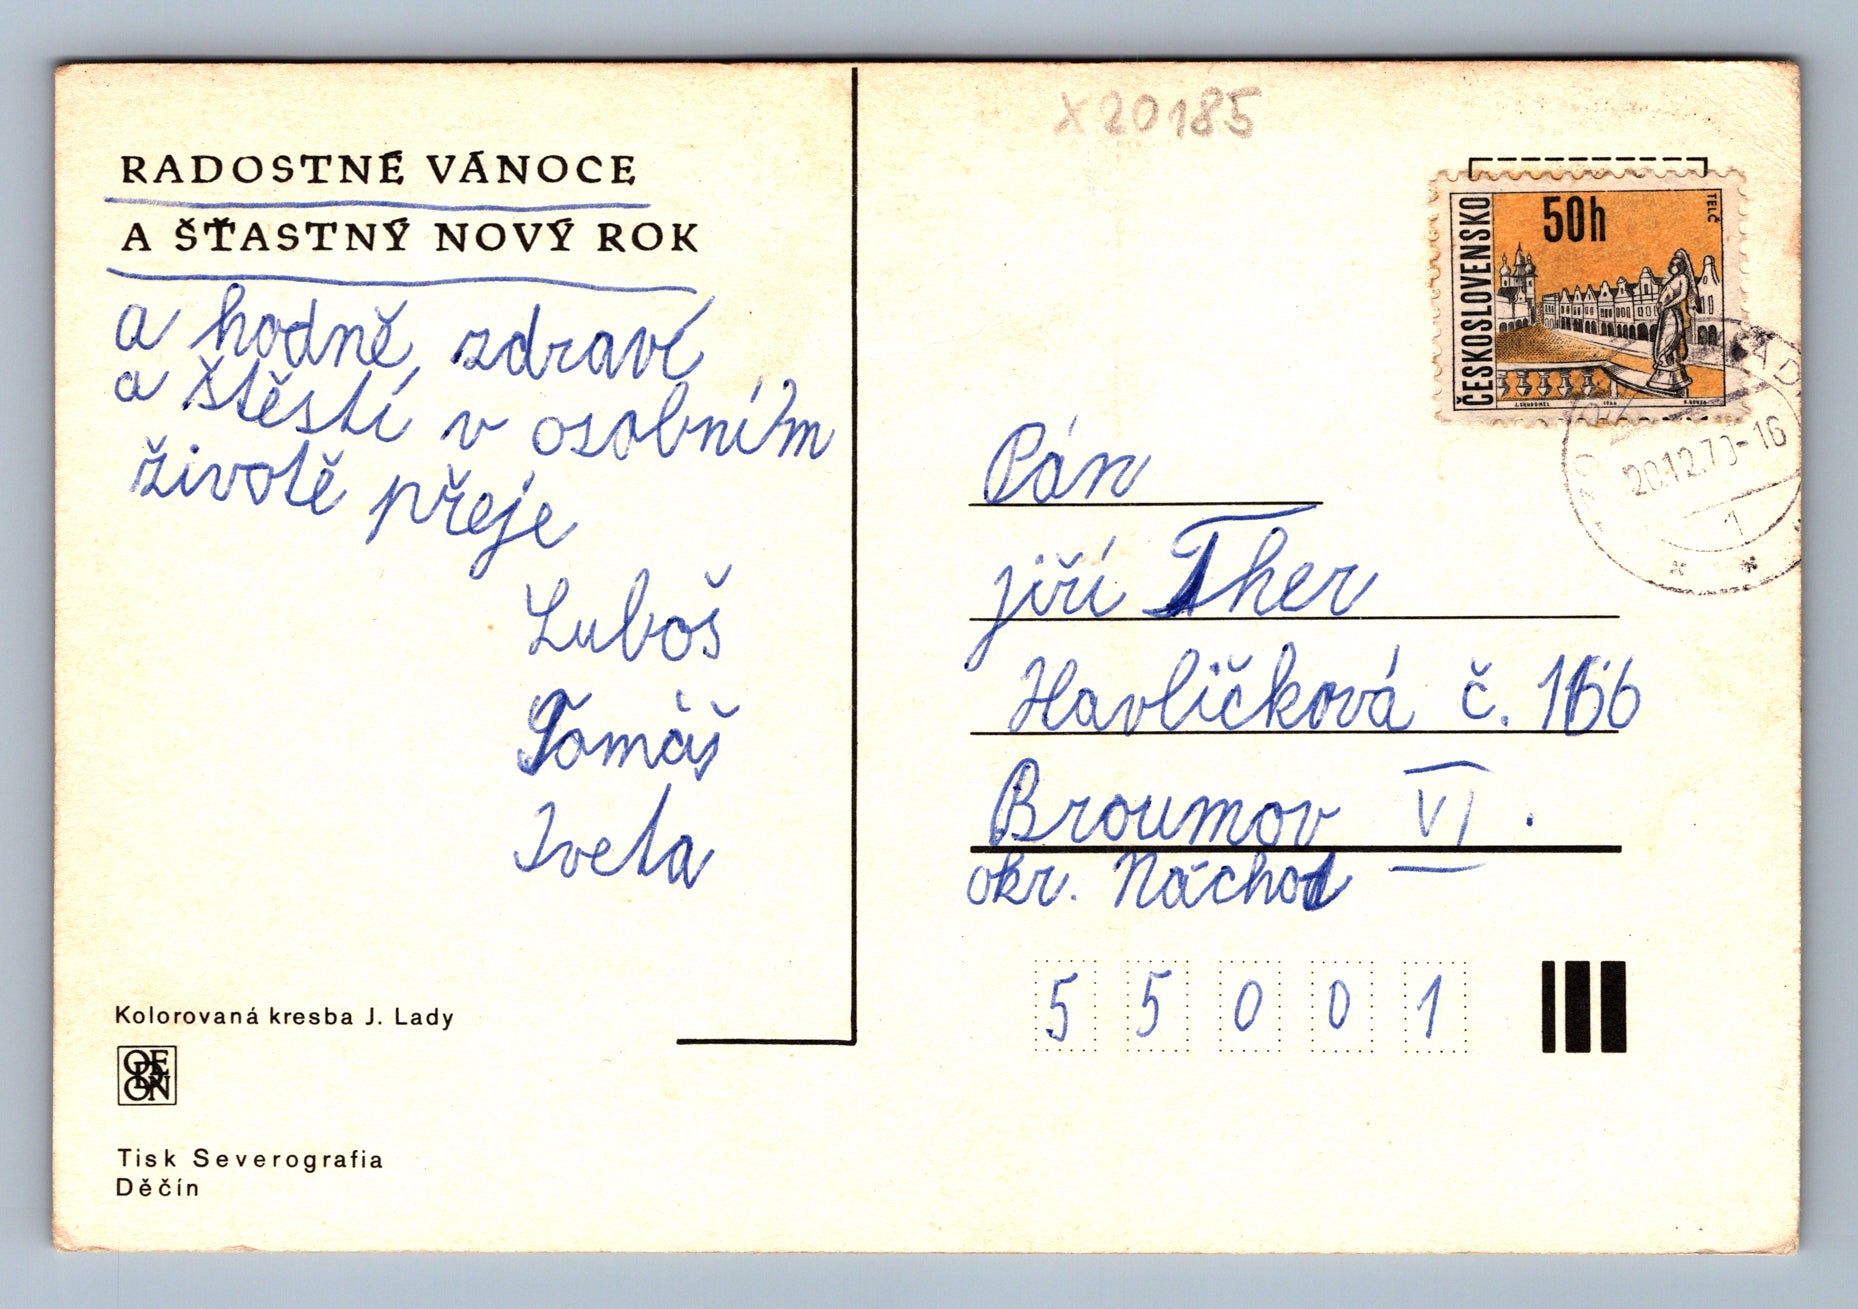 RADOSTNÉ VÁNOCE
A ŠŤASTNÝ NOVÝ ROK
a hodně zdraví
a štěstí v osobním
životě přeje
Luboš
Tomáš
Iveta
Kolorovaná kresba J. Lady
ODEON
Tisk Severografia
Děčín
X20185
ČESKOSLOVENSKO
50h
TELČ
20.12.70-16
1
Pán
jiří Ther
Havlíčková č. 166
Broumov VI.
okr. Náchod
55001